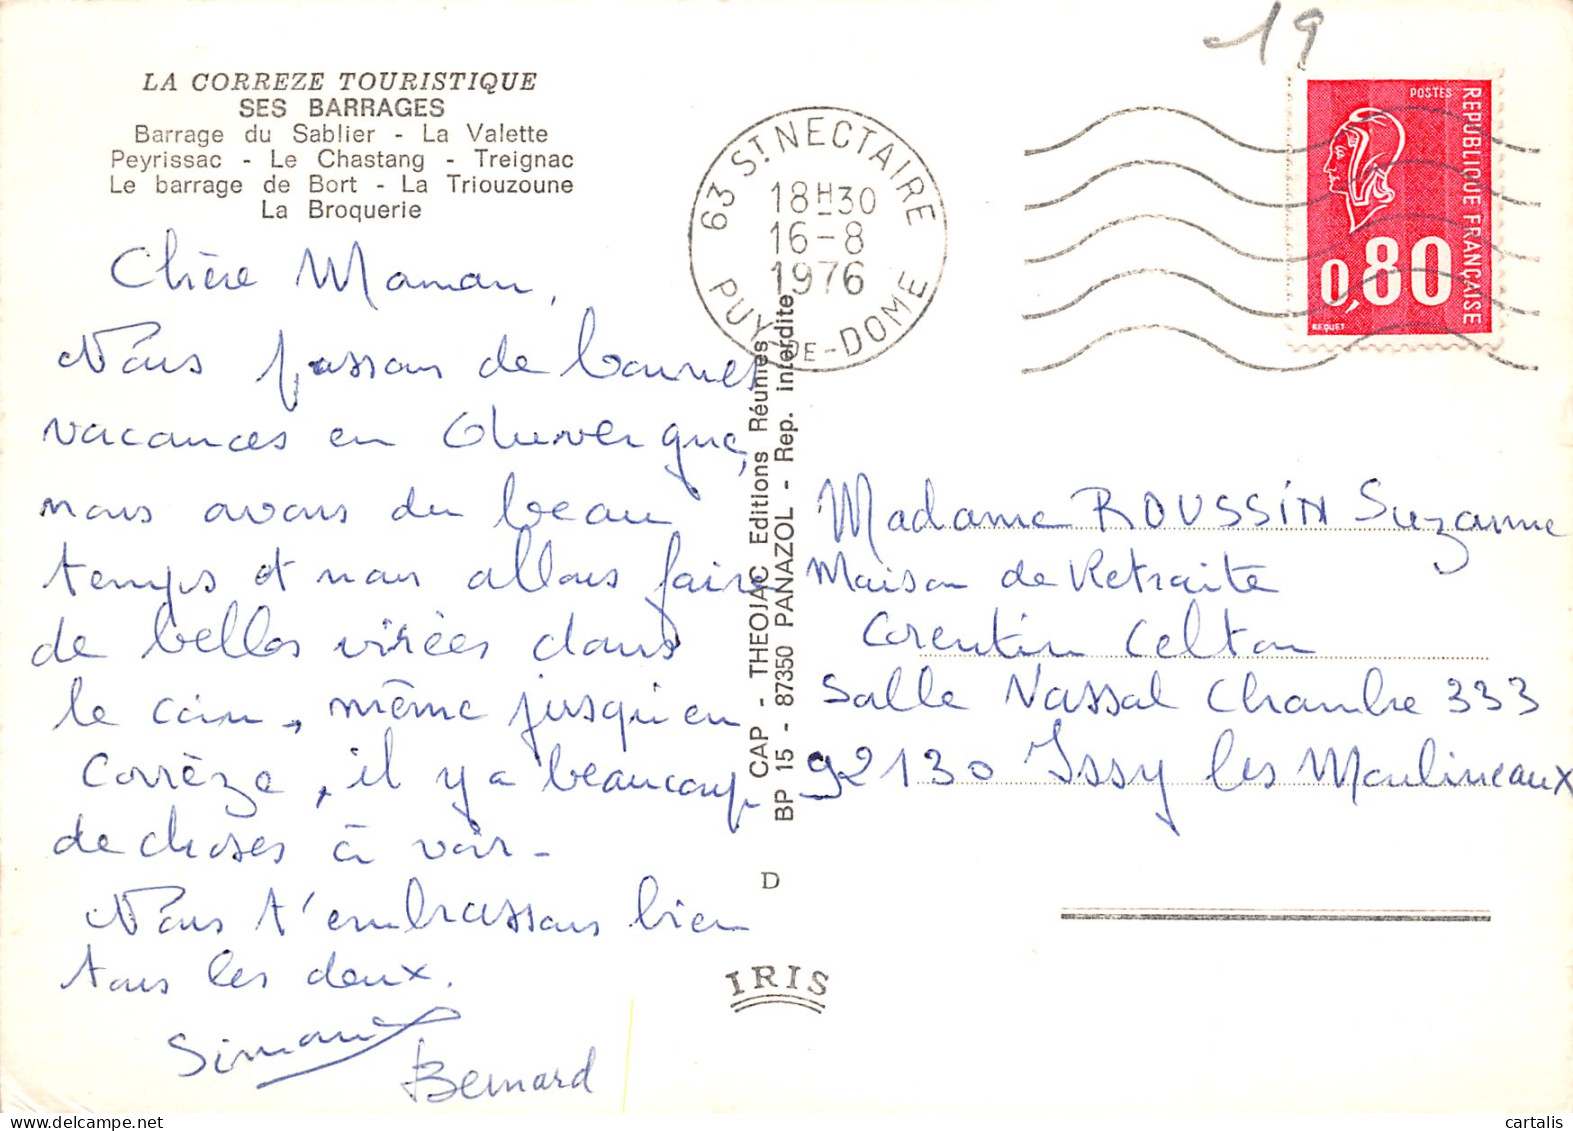 19
LA CORREZE TOURISTIQUE
SES BARRAGES
Barrage du Sablier - La Valette
Peyrissac - Le Chastang - Treignac
Le barrage de Bort - La Triouzoune
La Broquerie
63 ST NECTAIRE
18H30
16-8
1976
PUY-DE-DOME
POSTES
REPUBLIQUE FRANÇAISE
0,80
BEQUET
Chère Maman,
Nous passons de bonnes
vacances en Auvergne,
nous avons du beau
temps et nous allons faire
de belles virées dans
le coin, même jusqu'en
Corrèze, il y a beaucoup
de choses à voir -
Nous t'embrassons bien
tous les deux.
Simone
Bernard
CAP - THEOJAC Editions Réunies
BP 15 - 87350 PANAZOL - Rep. interdite
D
IRIS
Madame ROUSSIN Suzanne
Maison de Retraite
Corentin Celton
Salle Vassal Chambre 333
92130 Issy les Moulineaux
cartalis
www.delcampe.net